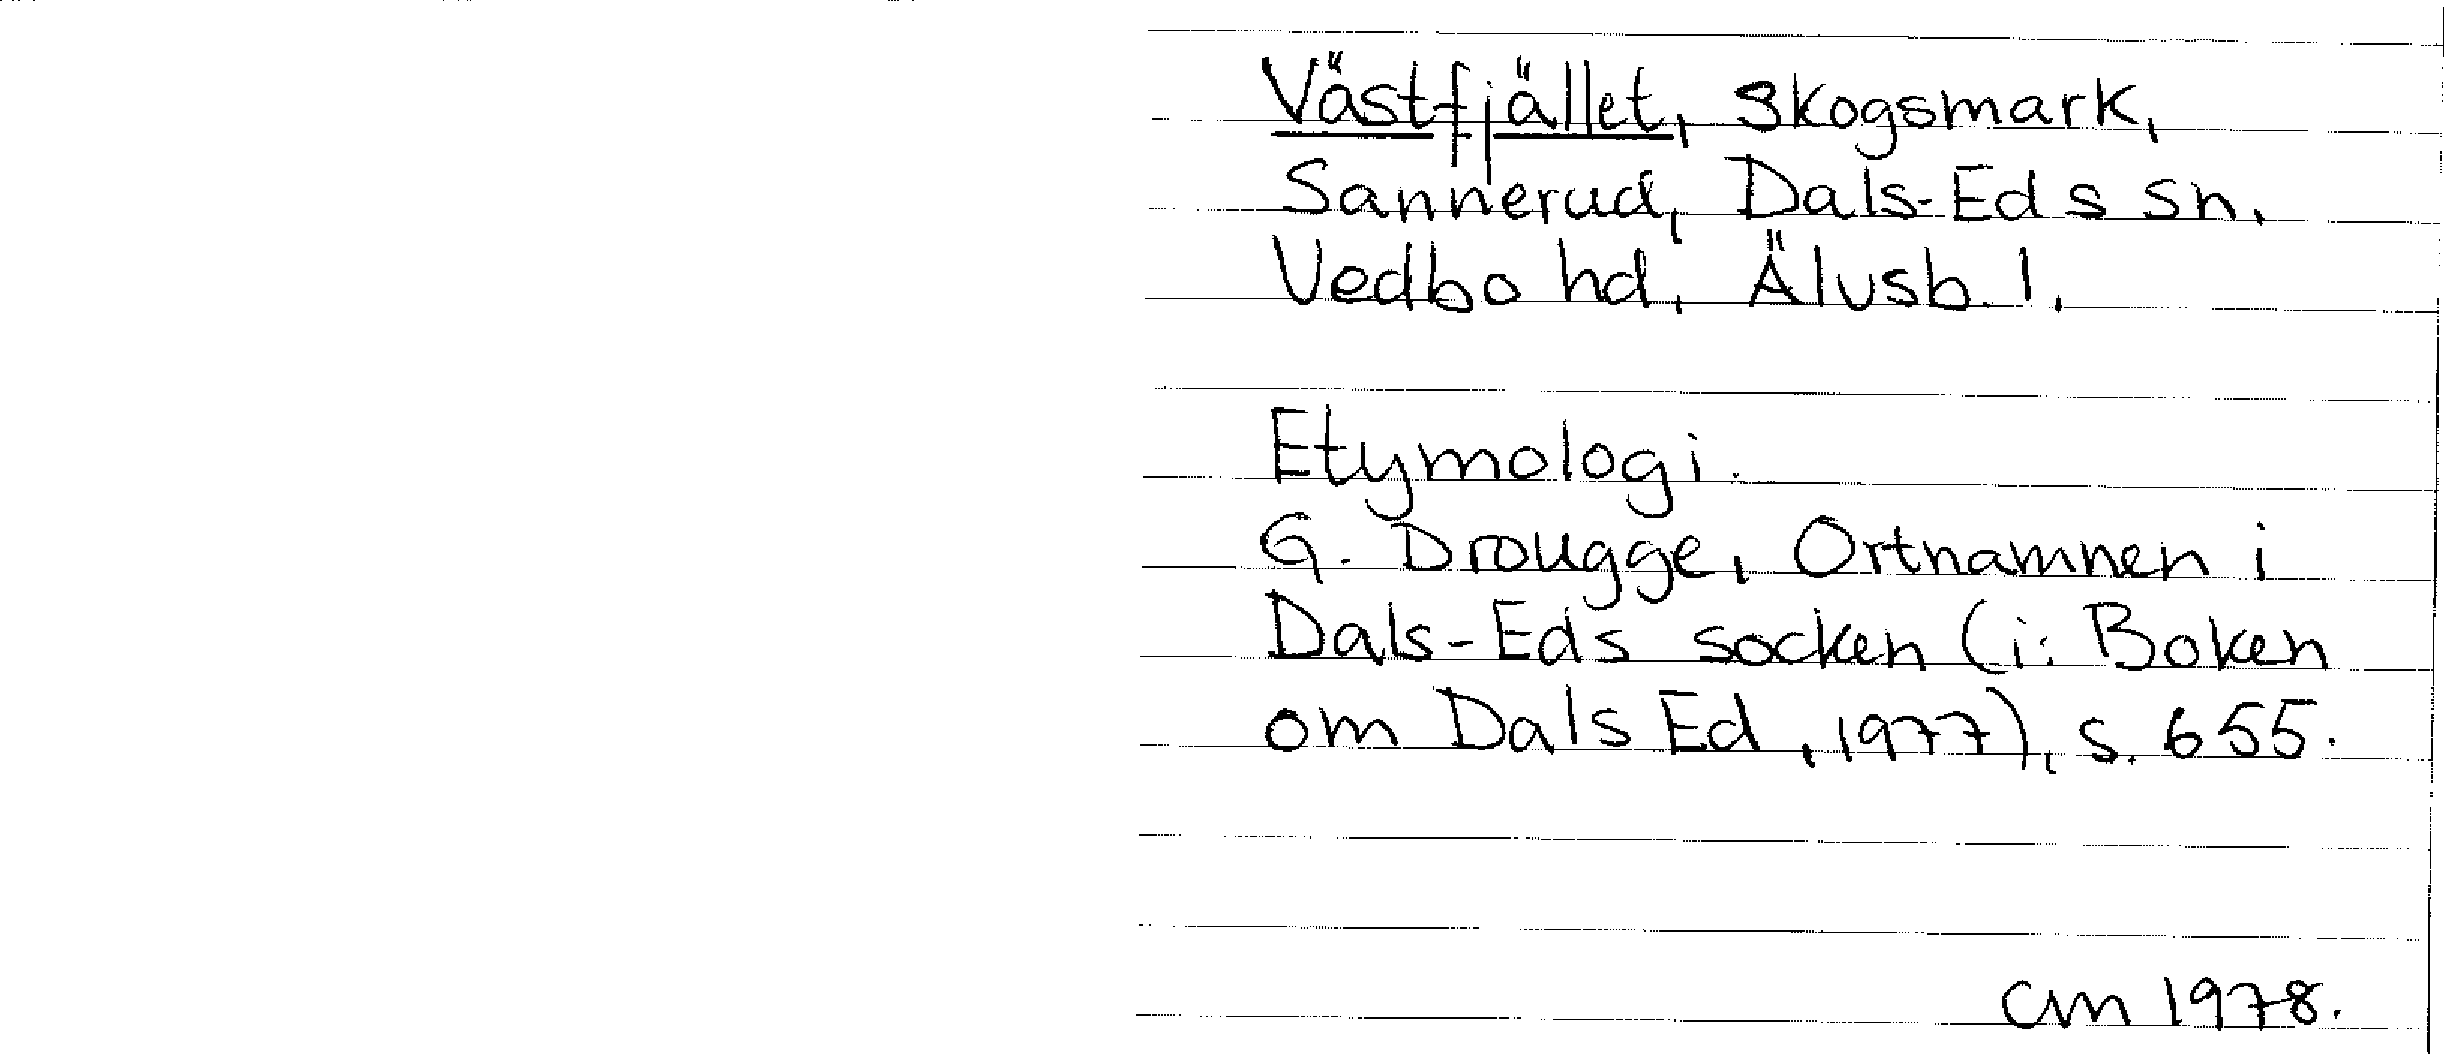 Västfjället, skogsmark,
Sannerud, Dals-Eds sn,
Vedbo hd, Älvsb. l.
Etymologi.
G. Drougge, Ortnamnen i
Dals-Eds socken (i: Boken
om Dals Ed, 1977), s. 655.
CM 1978.